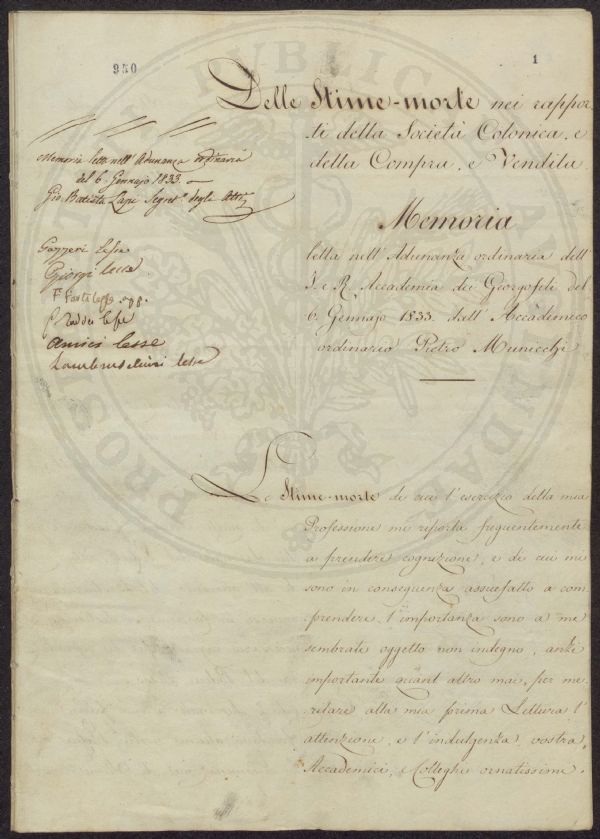 950
1
Delle Stime-morte nei rappor
ti della Società Colonica, e
della Compra, e Vendita.
Memoria letta nell'Adunanza ordinaria
al 6. Gennajo 1833 –
Gio Batista Lapi Segret.° degli Atti
Memoria
letta nell'Adunanza ordinaria dell'
I. e R. Accademia dei Georgofili del
6. Gennajo 1833. dall'Accademico
ordinario Pietro Municchi
Gazzeri lesse
Giorgi lesse
Taddei lesse
Amici lesse
Lambruschini lesse
Le Stime-morte de cui l'esercizio della mia
Professione mi riporta frequentemente
a prendere cognizione, e di cui mi
sono in conseguenza assuefatto a com
prendere l'importanza sono a me
sembrate oggetto non indegno, anzi
importante quant'altro mai, per me
ritare alla mia prima Lettura l'
attenzione, e l'indulgenza vostra,
Accademici, e Colleghi ornatissimi.
PUBLICAE
PROSPERITATI